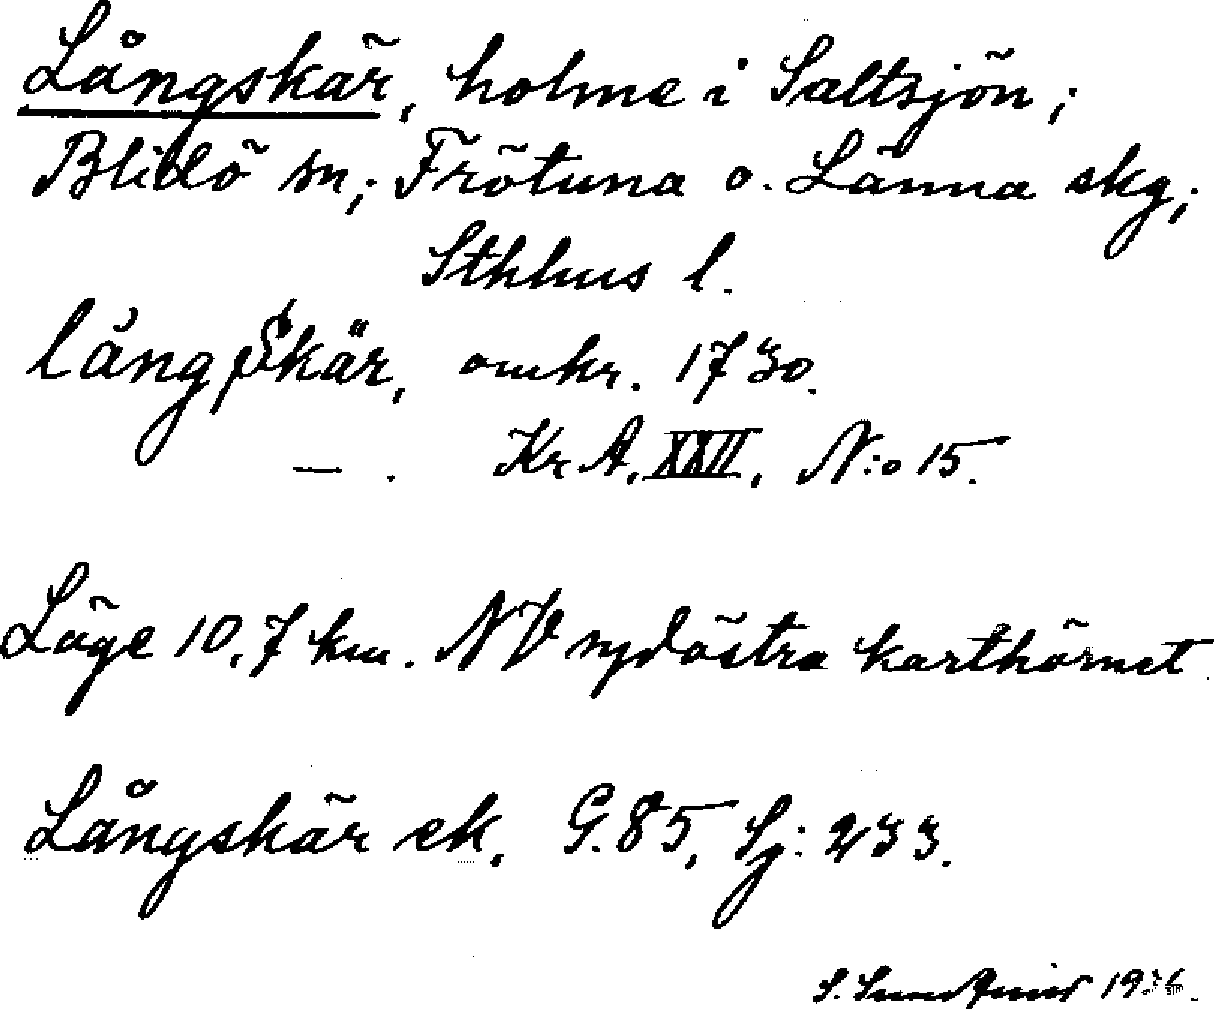 Långskär, holme i Saltsjön;
Blidö sn; Frötuna o. Länna skg;
Sthlms l.
lång Skär, omkr. 1730.
— . Kr A, XXII, N:o 15.
Läge 10,7 km. NV sydöstra karthörnet.
Långskär ek. G. 85, Sj: 233.
S.